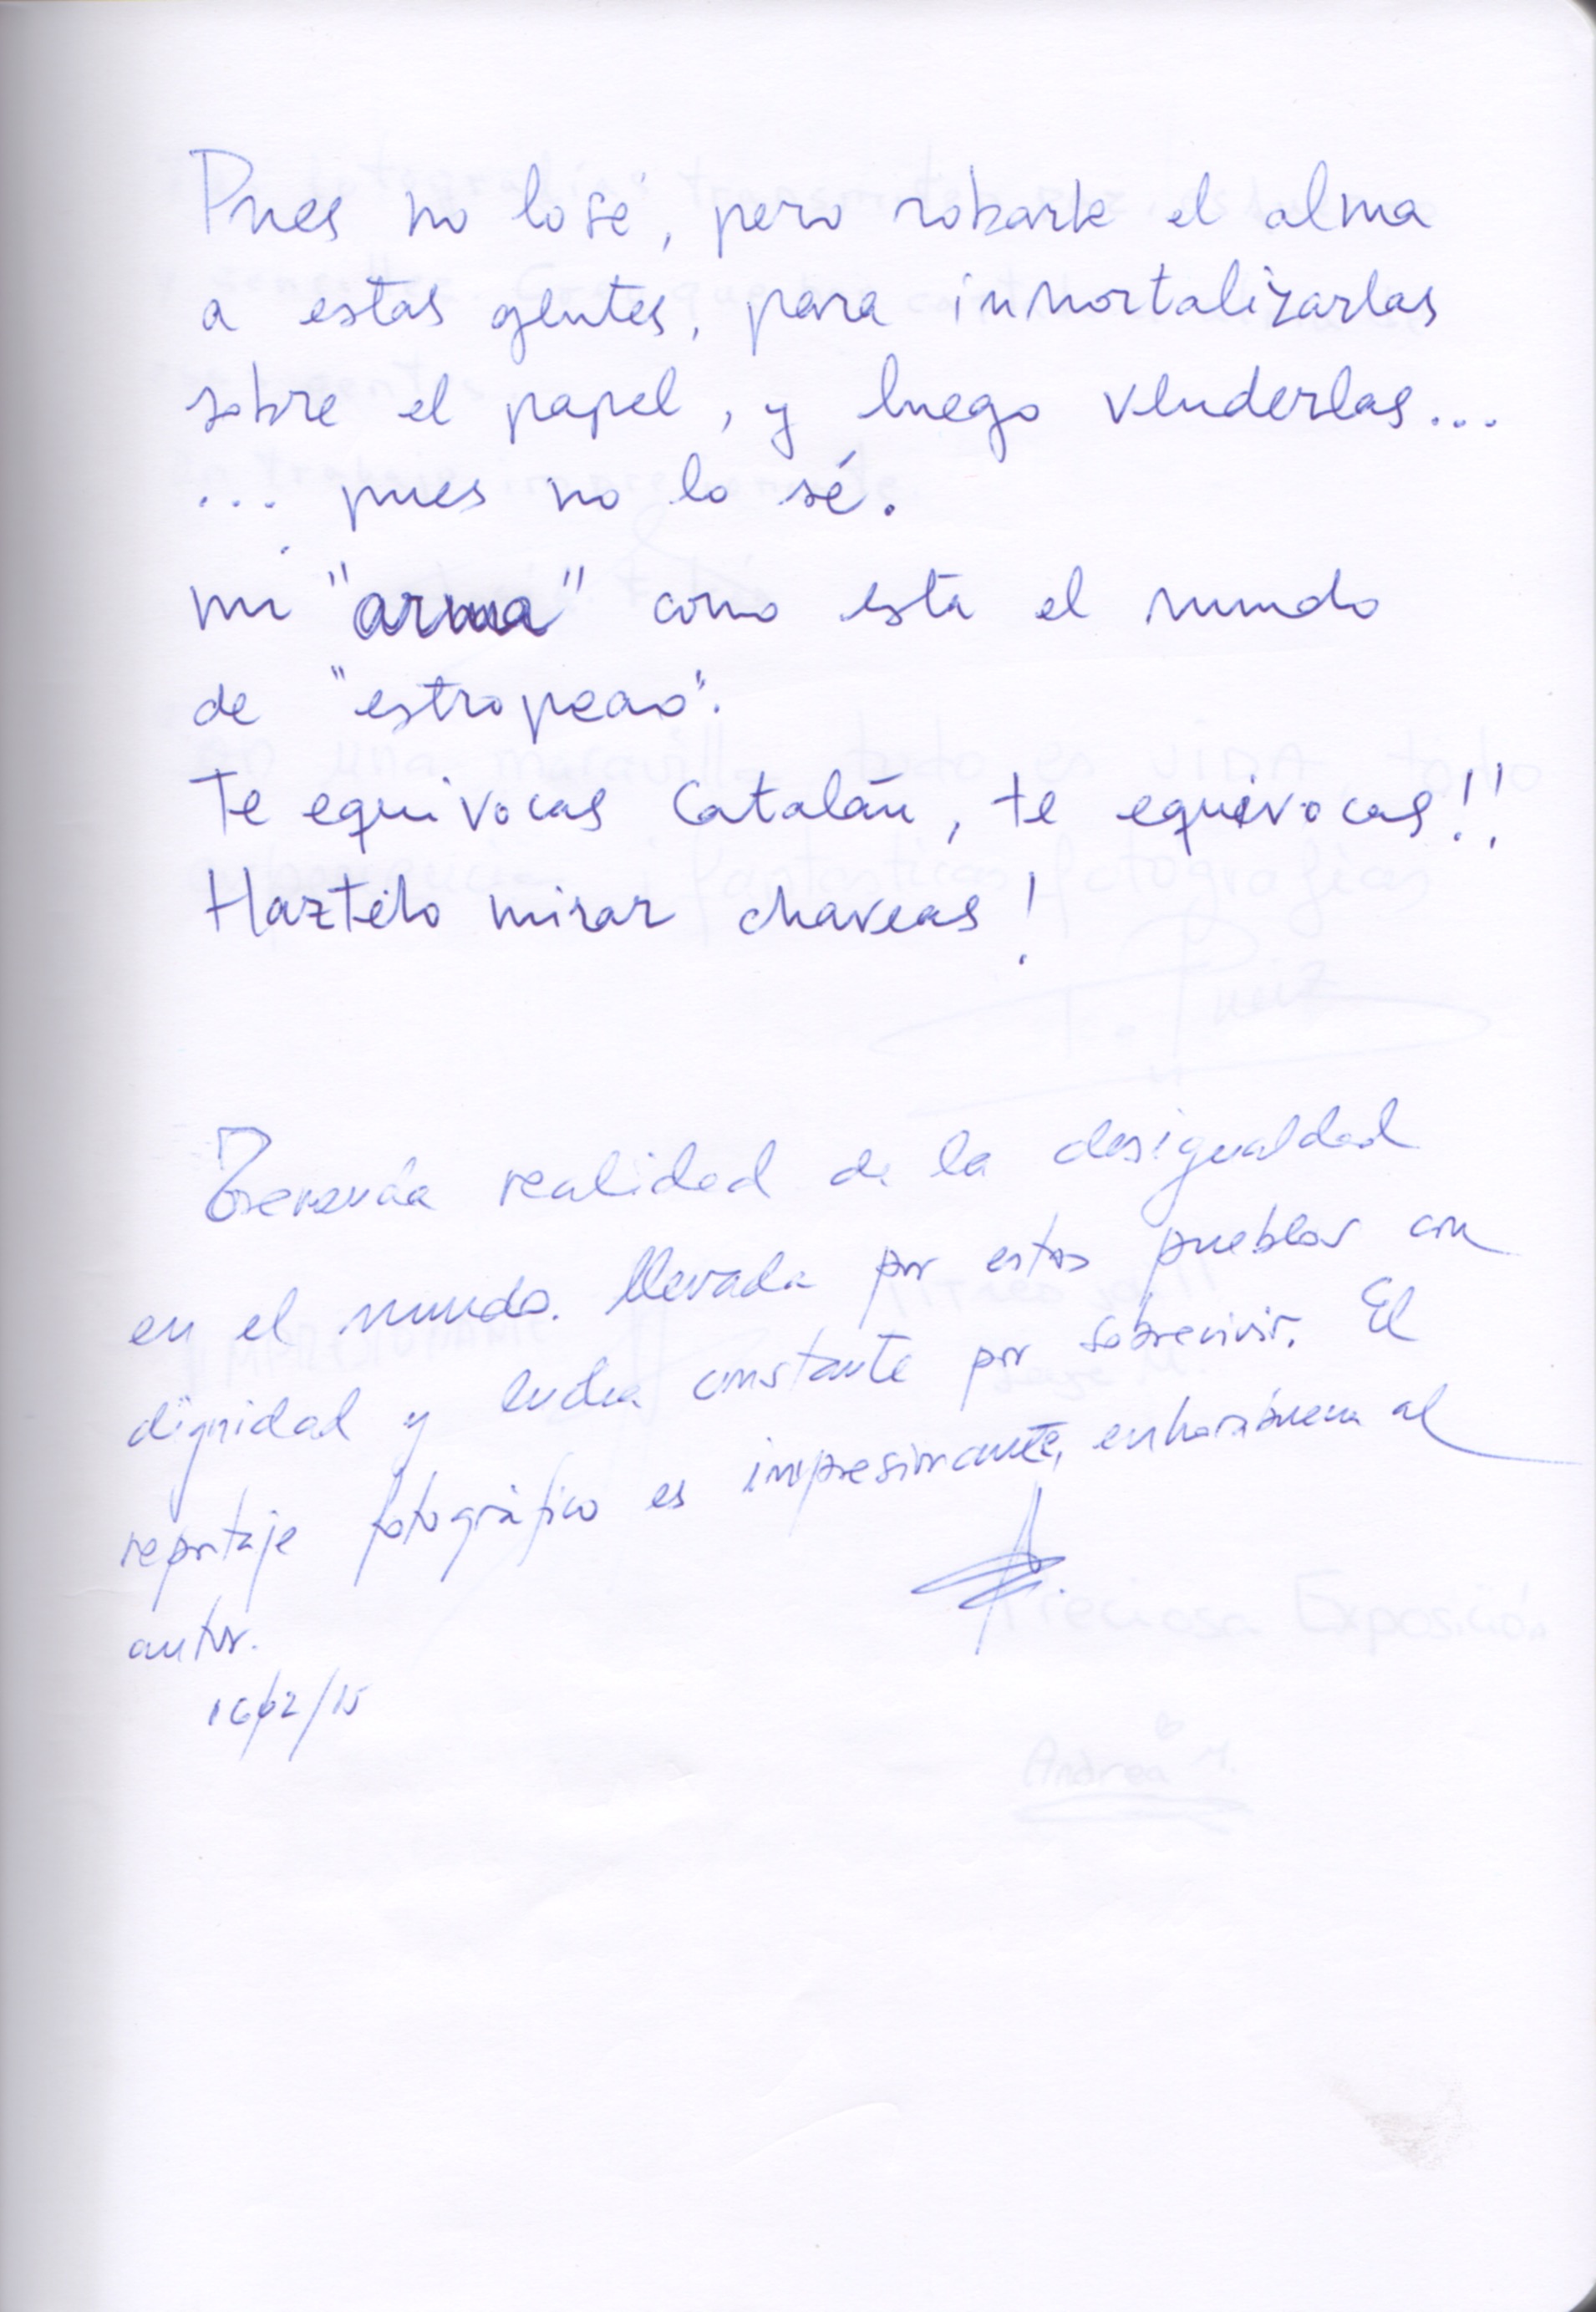 Pues no lo sé, pero robarle el alma
a estas gentes, para inmortalizarlas
sobre el papel, y luego venderlas...
... pues no lo sé.
mi "arma" como está el mundo
de "estropeao".
Te equivocas Catalán, te equivocas!!
Haztélo mirar chaveas!
realidad de la desigualdad
en el mundo. llevada por estos pueblos con
dignidad y lucha constante por sobrevivir. El
reportaje fotográfico es impresionante, enhorabuena al
autor.
16/02/15
Preciosa Exposición
Andrea M.